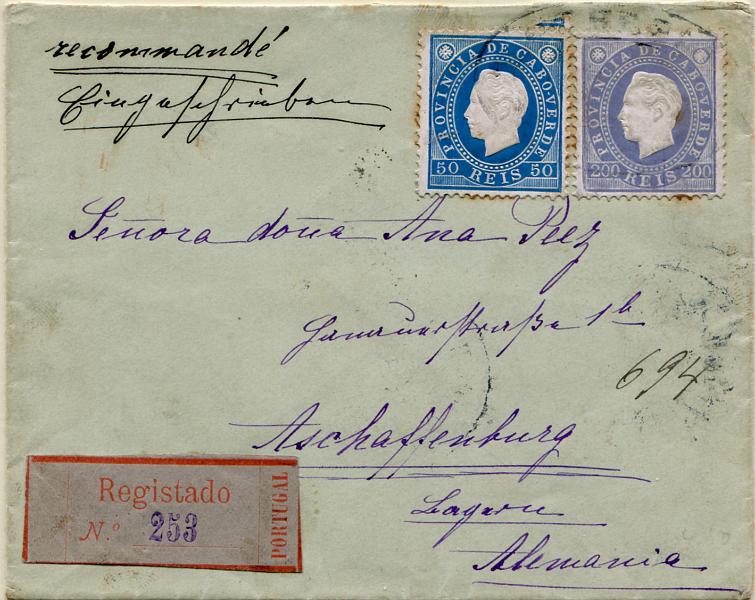 recommandé
Eingeschrieben
PROVINCIA DE CABO-VERDE
50 REIS 50
PROVINCIA DE CABO-VERDE
200 REIS 200
Señora doña Ana Peez
Hanauerstraße 1b
694
Aschaffenburg
Bayern
Alemania
Registado
N.º 253
PORTUGAL